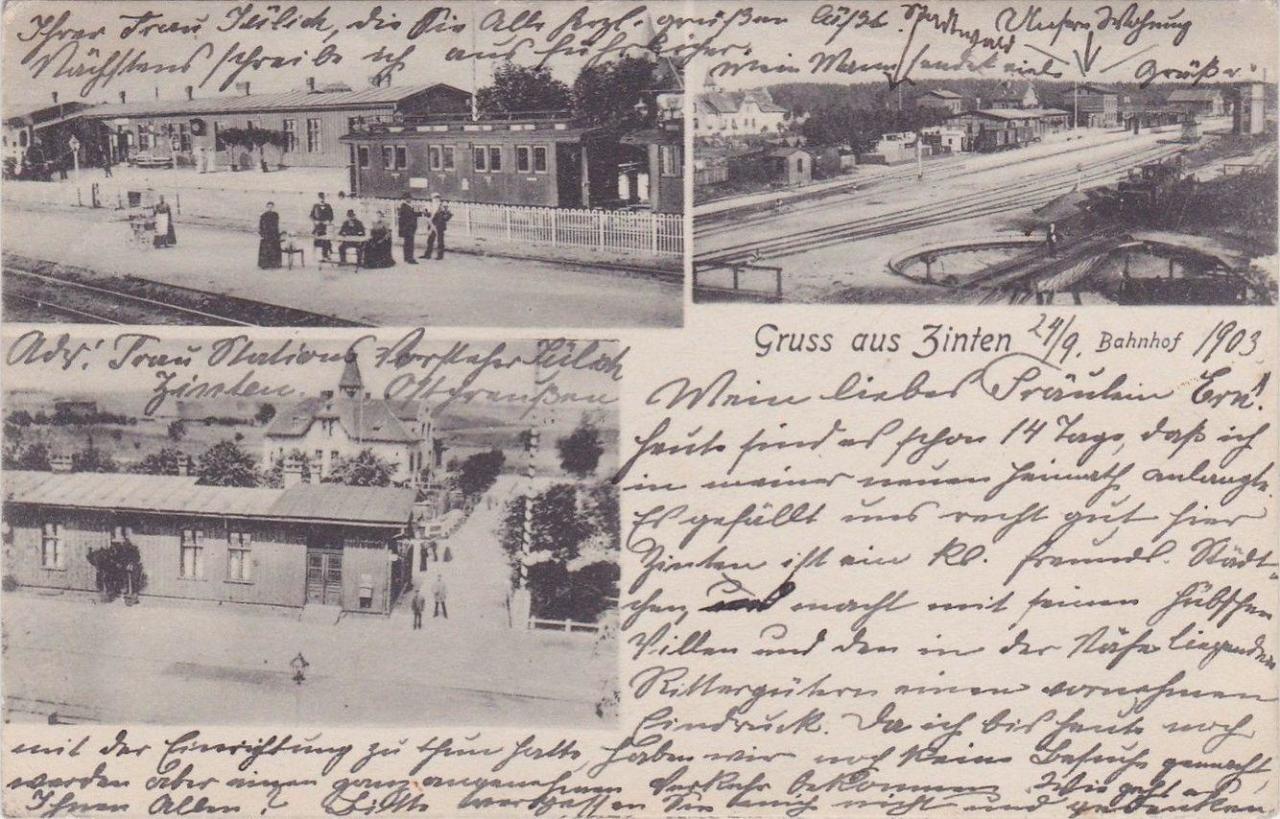 Gruss aus Zinten 24/9. Bahnhof 1903
Mein liebes Fräulein Ern!
heute sind es schon 14 Tage, daß ich
in meiner neuen Heimath anlangte.
Es gefällt uns recht gut hier
Zinten ist ein kl. freundl. Städt-
chen, macht mit seinen hübschen
Villen und den in der Nähe liegenden
Rittergütern einen vornehmen
Eindruck. Da ich bis heute noch
mit der Einrichtung zu thun hatte, haben wir noch keine Besuche gemacht,
werden aber einen ganz angenehmen Verkehr bekommen. Wie geht es
Ihnen Allen? Bitte vergessen Sie mich nicht und gedenken
Ihrer Frau Jülich, die Sie Alle herzl. grüßen läßt.
Nächstens schreibe ich ausführlicher.
mein Mann sendet viele Grüße.
Stadtwald
Unsere Wohnung
Adr: Frau Stations Vorsteher Jülich
Zinten. Ostpreußen